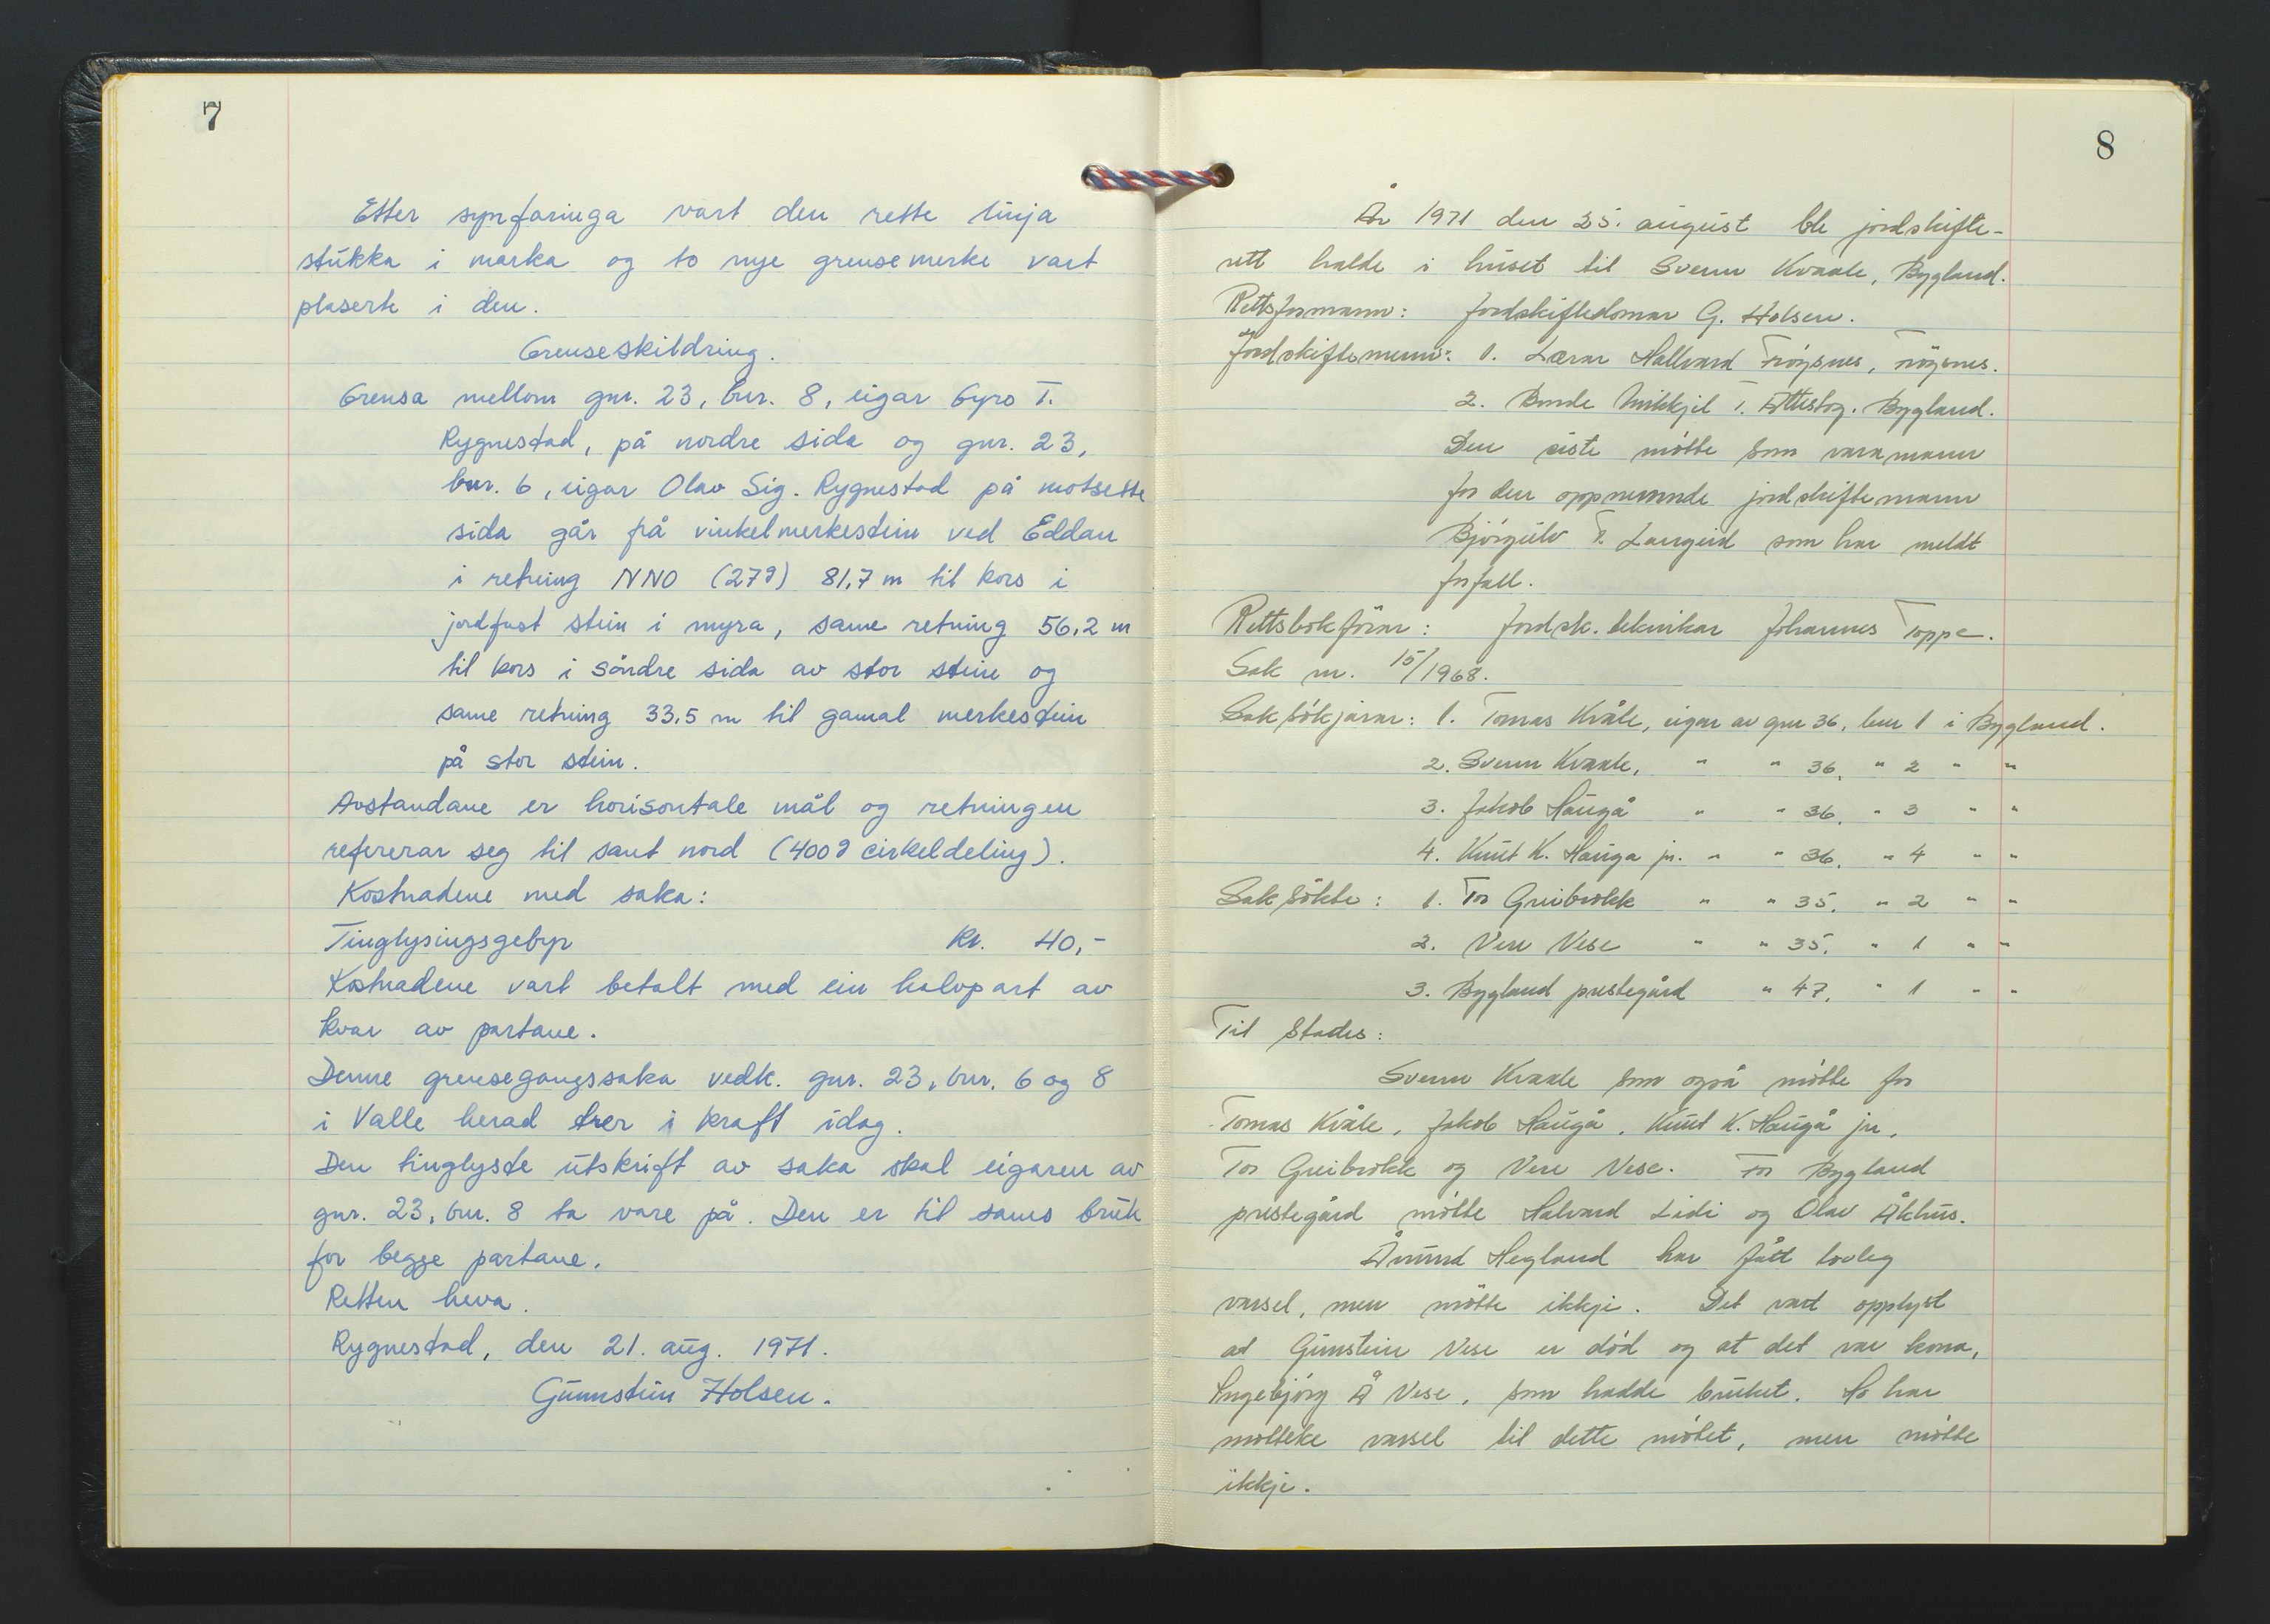 7
Etter synfaringa vart den rette linja
stukka i marka og to nye grensemerke vart
plaserte i den.
Grenseskildring.
Grensa mellom gnr. 23, bnr. 8, eigar Gyro T.
Rygnestad, på nordre sida og gnr. 23,
bnr. 6, eigar Olav Sig. Rygnestad på motsette
sida går frå vinkelmerkestein ved Eddan
i retning NNO (27g) 81,7 m til kors i
jordfast stein i myra, same retning 56,2 m
til kors i söndre sida av stor stein og
same retning 33,5 m til gamal merkestein
på stor stein.
Avstandane er horisontale mål og retningen
refererar seg til sant nord (400g cirkeldeling).
Kostnadene med saka:
Tinglysingsgebyr kr. 40,-
Kostnadene vart betalt med ein halvpart av
kvar av partane.
Denne grensegangssaka vedk. gnr. 23, bnr. 6 og 8
i Valle herad trer i kraft idag.
Den tinglyste utskrift av saka skal eigaren av
gnr. 23, bnr. 8 ta vare på. Den er til sams bruk
for begge partane.
Retten heva.
Rygnestad, den 21. aug. 1971.
Gunnstein Holsen.
8
År 1971 den 25. august ble jordskifte-
rett halde i huset til Svenn Kvaale, Bygland.
Rettsformann: Jordskiftedomar G. Holsen.
Jordskiftemenn: 1. Lærar Hallvard Frøysnes, Frøysnes.
2. Bonde Mikkjel T. Åttestog. Bygland.
Den siste møtte som varamann
for den oppnemnde jordskiftemann
Bjørgulv T. Langeid som har meldt
forfall.
Rettsbokførar: Jordsk. teknikar Johannes Toppe.
Sak nr. 15/1968.
Saksökjarar: 1. Tomas Kvåle, eigar av gnr 36, bnr 1 i Bygland.
2. Svenn Kvaale, " " 36, " 2 " "
3. Jakob Haugå " " 36, " 3 " "
4. Knut K. Hauga jr. " " 36, " 4 " "
Saksökte: 1. Tor Greibrokk " " 35, " 2 " "
2. Vere Vese " " 35, " 1 " "
3. Bygland prestegård " 47, " 1 " "
Til stades:
Svenn Kvaale som også møtte for
Tomas Kvåle, Jakob Haugå, Knut K. Haugå jr,
Tor Greibrokk og Vere Vese. For Bygland
prestegård møtte Halvard Lidi og Olav Åkhus.
Ånund Hegland har fått lovleg
varsel, men møtte ikkje. Det vart opplyst
at Gunstein Vese er død og at det var kona,
Ingebjørg Å Vese, som hadde bruket. Ho har
motteke varsel til dette møtet, men møtte
ikkje.